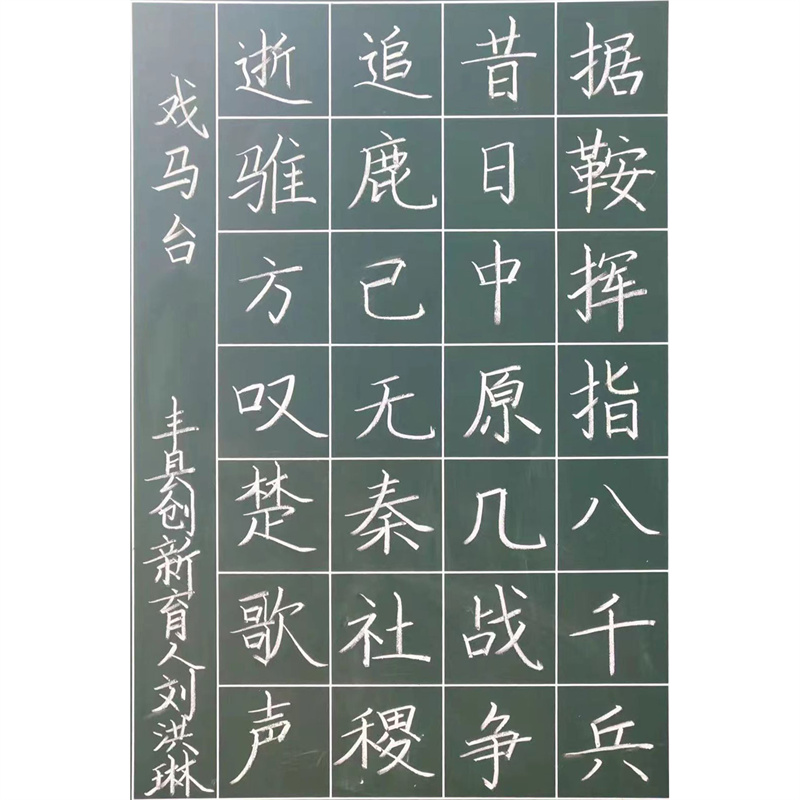 据鞍挥指八千兵
昔日中原几战争
追鹿已无秦社稷
逝骓方叹楚歌声
戏马台
丰县创新育人刘洪琳